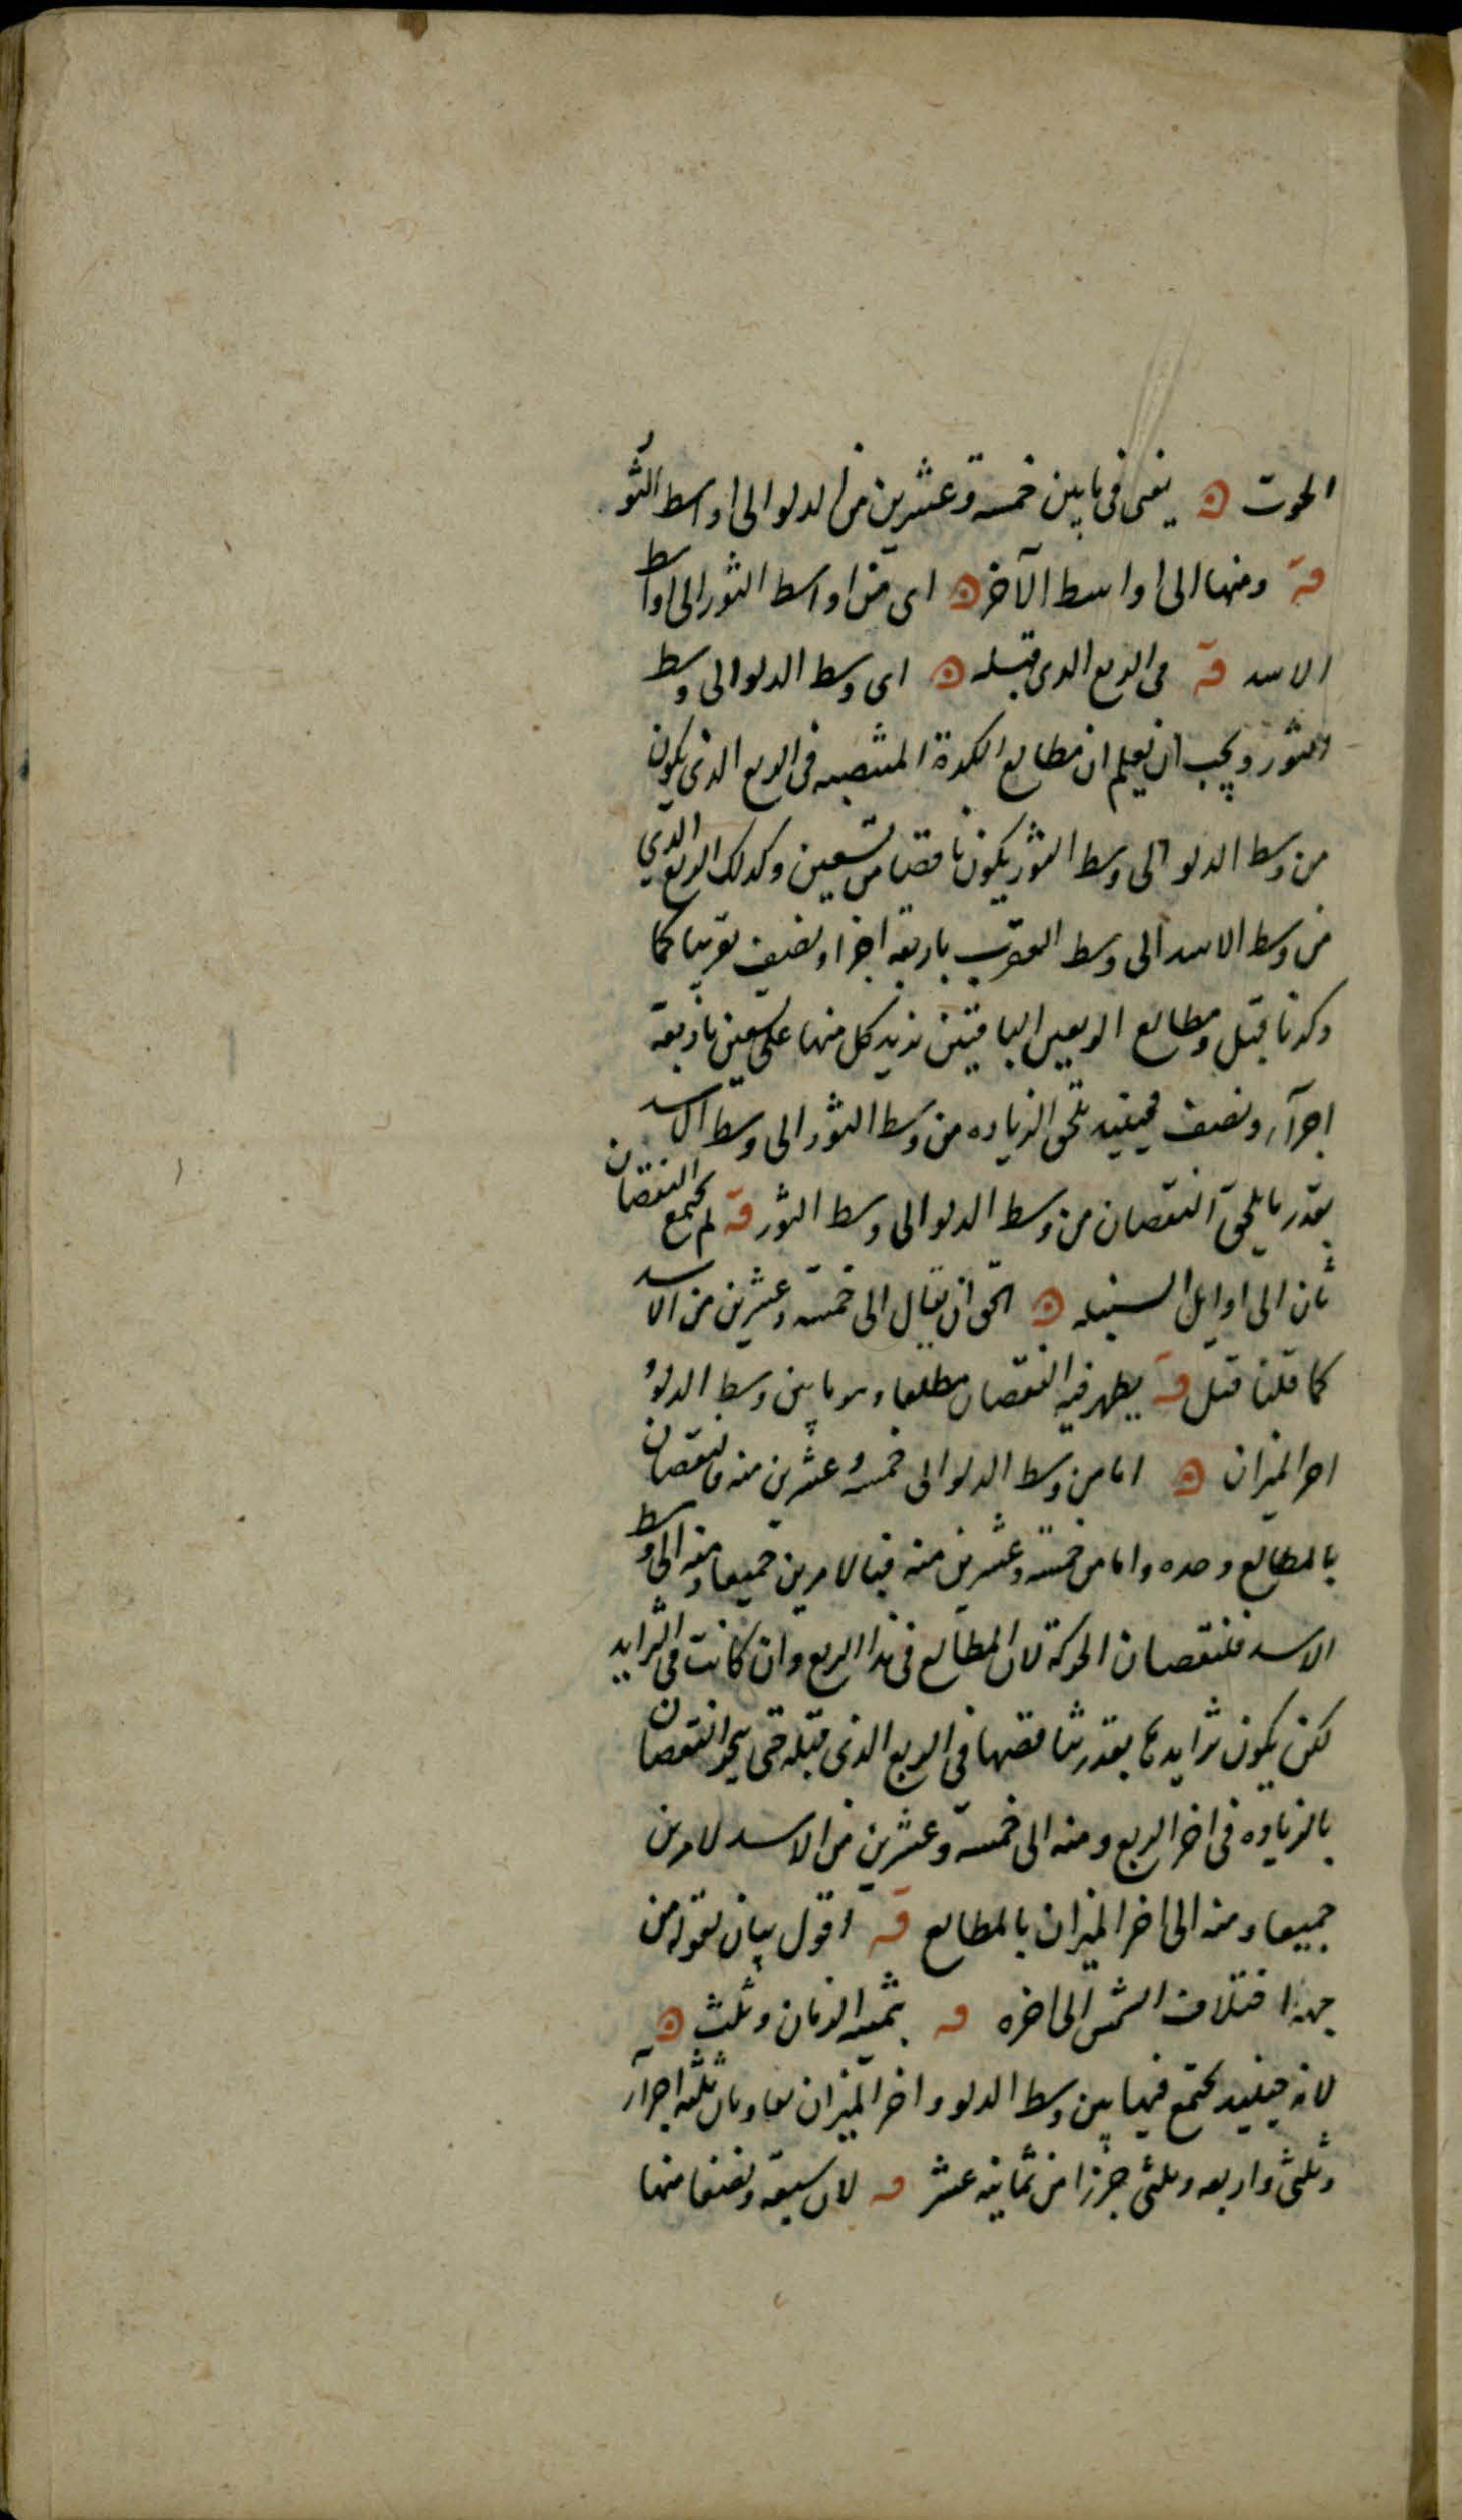 الحوت يعنى فى ما بين خمسة وعشرين من الدلو الى اواسط الثور
قه ومنها الى اواسط الآخر اى من اواسط الثور الى اواسط
الاسد قه فى الربع الذى قبله اى وسط الدلو الى وسط
الثور ويجب ان يعلم ان مطالع الكرة المنتصبه فى الربع الذى يكون
من وسط الدلو الى وسط الثور يكون ناقصا من تسعين وكذلك الربع الذي
من وسط الاسد الى وسط العقرب باربعه اجزا ونصف تقريبا كما
ذكرنا قبل ومطالع الربعين الباقيين تزيد كل منها على تسعين باربعة
اجزآء ونصف فحينيذ تلحق الزياده من وسط الثور الى وسط الاسد
بقدر ما يلحق النقصان من وسط الدلو الى وسط الثور قه لم يجتمع النقصان
ثان الى اوايل السنبله الحق ان يقال الى خمسة وعشرين من الاسد
كما قلنا قبل قه يظهر فيه النقصان مطلقا وهو ما بين وسط الدلو و
اخر الميزان اما من وسط الدلو الى خمسة وعشرين منه فالنقصان
بالمطالع وحده واما من خمسة وعشرين منه فبالامرين جميعا ومنه الى وسط
الاسد فلنقصان الحركة لان المطالع فى هذا الربع وان كانت فى التزايد
لكن يكون تزايدها بقدر تناقصها فى الربع الذى قبله حتى ينجبر النقصان
بالزياده فى اخر الربع ومنه الى خمسة وعشرين من الاسد للامرين
جميعا ومنه الى اخر الميزان بالمطالع قه اقول بيان لقوله من
جهة اختلاف الشمس الى اخره قه بثمنيه ازمان وثلث
لانه حينيذ يجتمع فيما بين وسط الدلو واخر الميزان معا ثلثه اجزآء
وثلثى واربعه وثلثى جزء من ثمانيه عشر قه لان سبعه ونصفا منها